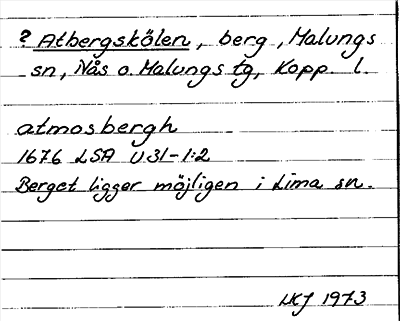 ? Atbergskölen, berg, Malungs
sn, Nås o. Malungs tg, Kopp. l.
atmosbergh
1676 LSA U 31-1:2
Berget ligger möjligen i Lima sn.
LKJ 1973